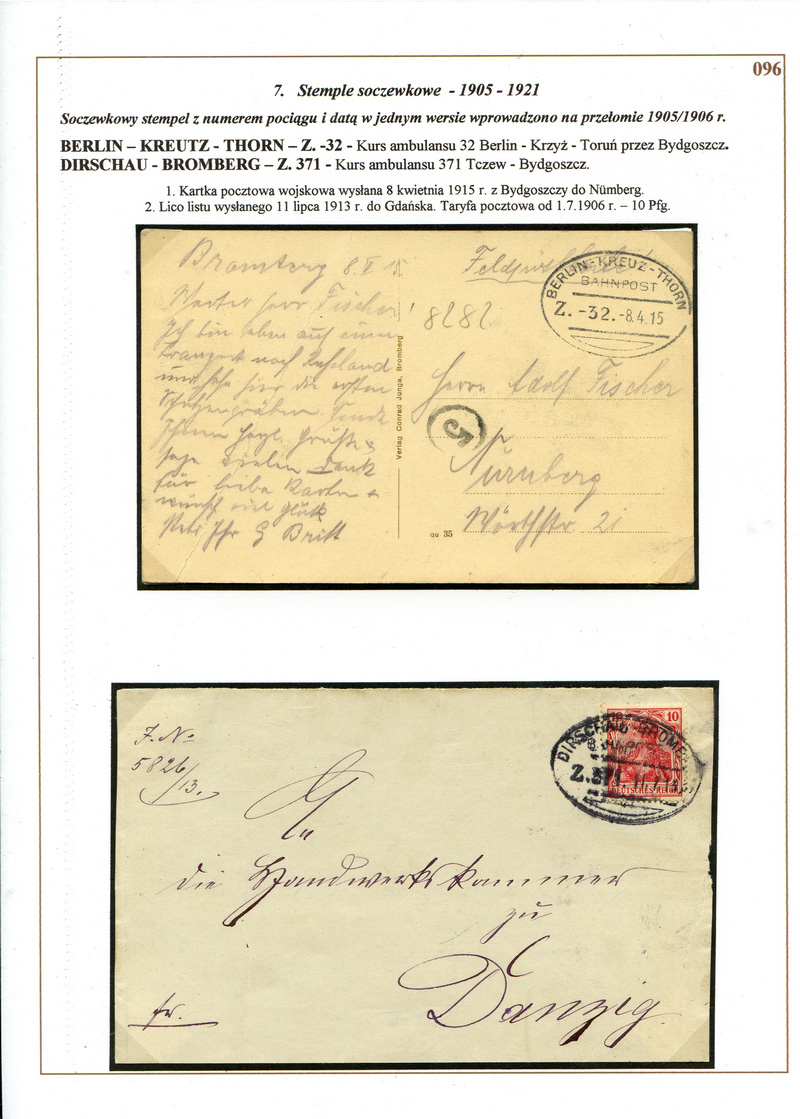 096
7. Stemple soczewkowe - 1905 - 1921
Soczewkowy stempel z numerem pociągu i datą w jednym wersie wprowadzono na przełomie 1905/1906 r.
BERLIN – KREUTZ - THORN – Z. -32 - Kurs ambulansu 32 Berlin - Krzyż - Toruń przez Bydgoszcz.
DIRSCHAU - BROMBERG – Z. 371 - Kurs ambulansu 371 Tczew - Bydgoszcz.
1. Kartka pocztowa wojskowa wysłana 8 kwietnia 1915 r. z Bydgoszczy do Nümberg.
2. Lico listu wysłanego 11 lipca 1913 r. do Gdańska. Taryfa pocztowa od 1.7.1906 r. – 10 Pfg.
Bromberg 8. 15
Werter Herr Fischer!
Ich bin eben auf einem
Transport nach Russland
und sehe hier die ersten
Schützengräben.
Grüße
sage vielen Dank
für liebe Karten
wünsche viel Glück
Britt
Verlag Conrad Junga, Bromberg
qu 35
Feldpost
8282
BERLIN-KREUZ-THORN
BAHNPOST
Z. -32. -8.4.15
Herrn Adolf Fischer
Nürnberg
Wörthstr 21
J. No
5826
/13.
10
DEUTSCHES REICH
DIRSCHAU-BROMB
Z.371
An
die Handwerkskammer
zu
Danzig.
fr.